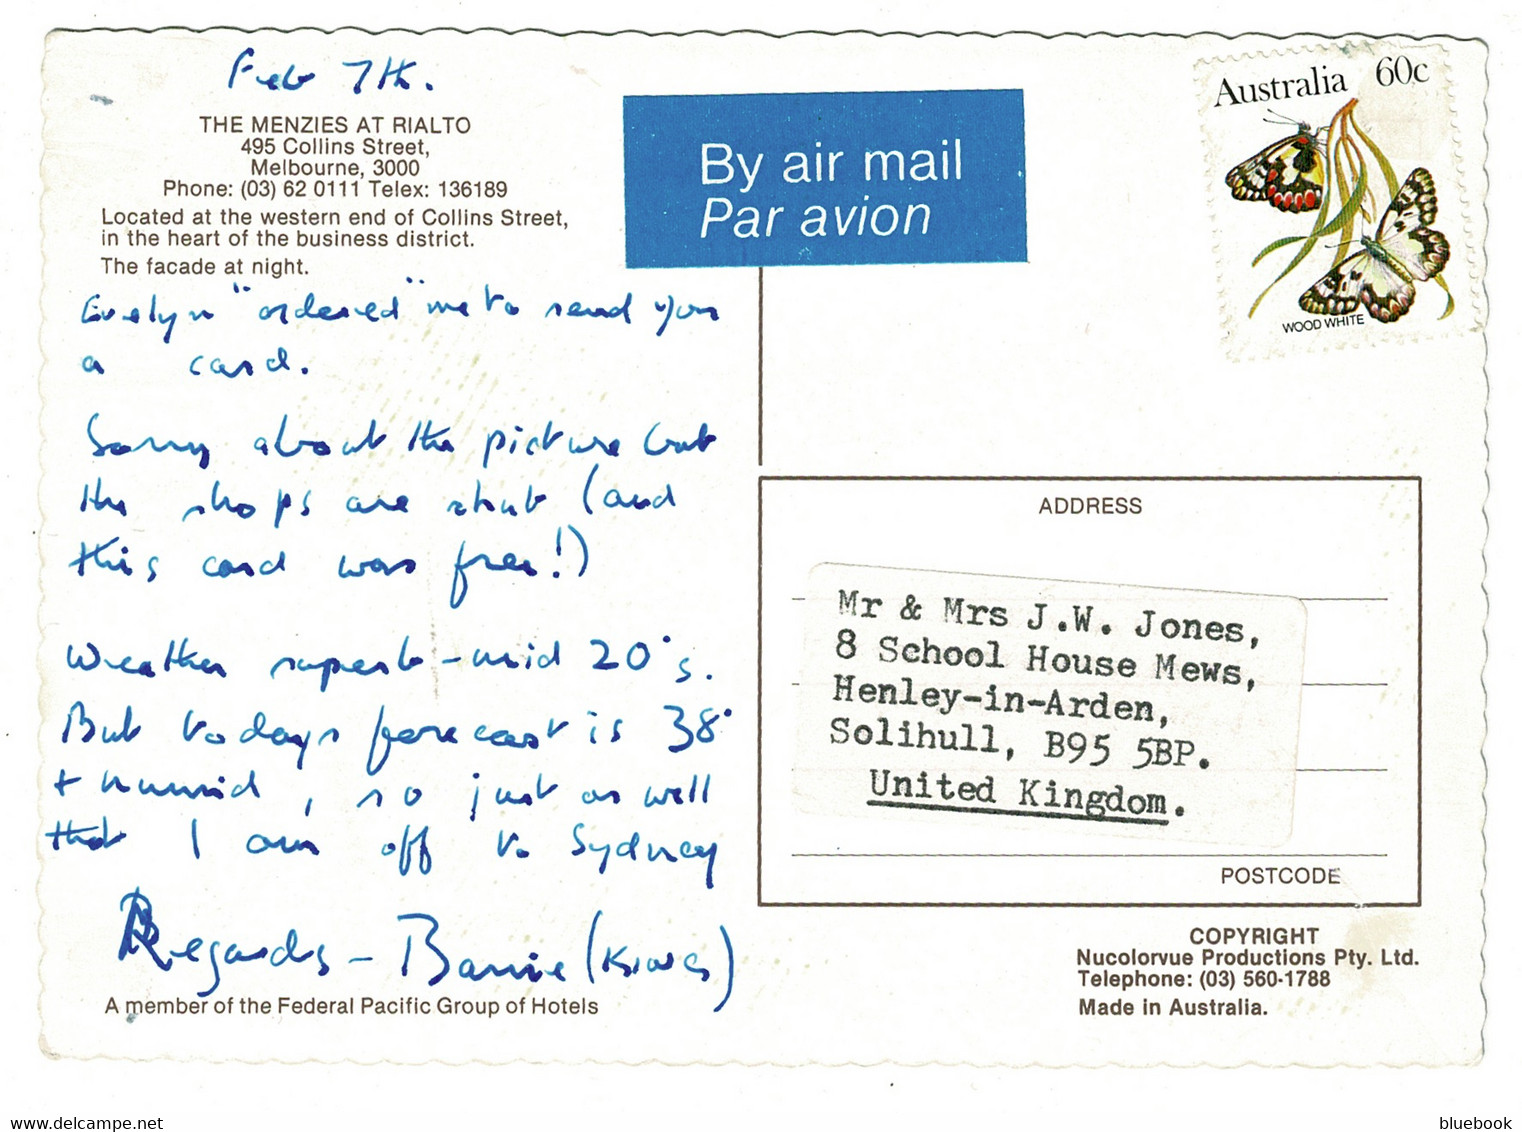 Feb 7th.
THE MENZIES AT RIALTO
495 Collins Street,
Melbourne, 3000
Phone: (03) 62 0111 Telex: 136189
Located at the western end of Collins Street,
in the heart of the business district.
The facade at night.
Evelyn "ordered" me to send you
a card.
Sorry about the picture but
the shops are shut (and
this card was free!)
Weather superb - mid 20°s.
But todays forecast is 38°
+ humid, so just as well
that I am off to Sydney
Regards - Barrie
A member of the Federal Pacific Group of Hotels
By air mail
Par avion
Australia 60c
WOOD WHITE
ADDRESS
Mr & Mrs J.W. Jones,
8 School House Mews,
Henley-in-Arden,
Solihull, B95 5BP.
United Kingdom.
POSTCODE
COPYRIGHT
Nucolorvue Productions Pty. Ltd.
Telephone: (03) 560-1788
Made in Australia.
delcampe.net
bluebook